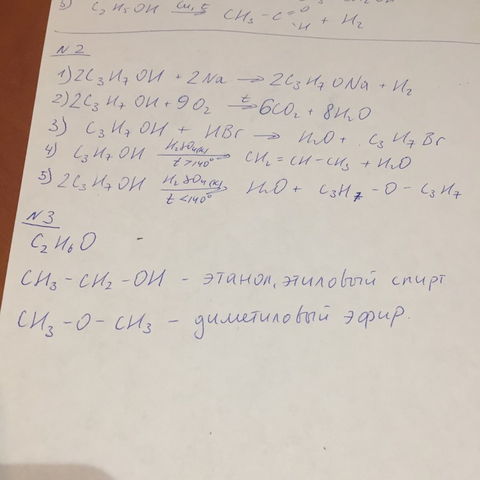 3) C₂H₅OH Cu, t → CH₃ – C =O –H + H₂
N2
1) 2C₃H₇OH + 2Na → 2C₃H₇ONa + H₂
2) 2C₃H₇OH + 9O₂ t → 6CO₂ + 8H₂O
3) C₃H₇OH + HBr → H₂O + C₃H₇Br
4) C₃H₇OH H₂SO₄(к) t>140° → CH₂ = CH – CH₃ + H₂O
5) 2C₃H₇OH H₂SO₄(к) t<140° → H₂O + C₃H₇ – O – C₃H₇
N3
C₂H₆O –
CH₃ – CH₂ – OH – этанол, этиловый спирт
CH₃ – O – CH₃ – диметиловый эфир.